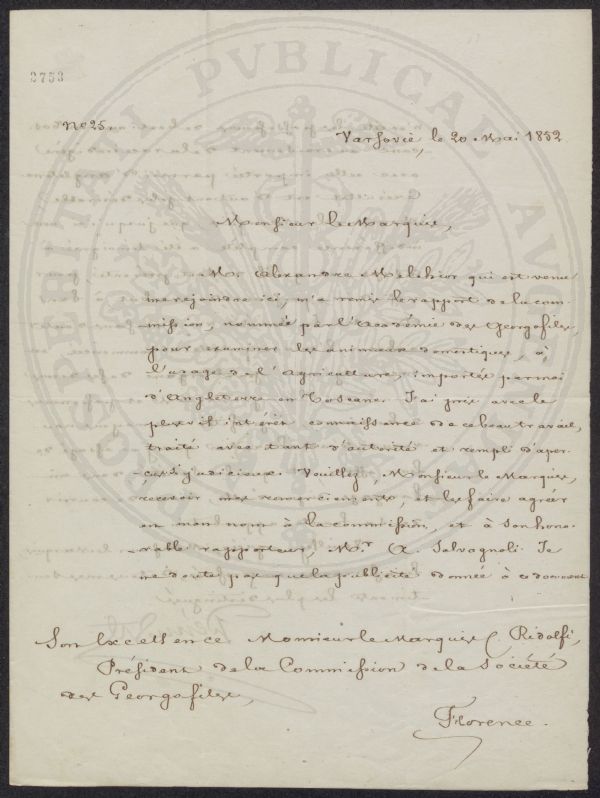 PROSPERITATI PUBLICAE AUGENDAE
2753
No 25
Varsovie, le 20 Mai 1852
Monsieur le Marquis,
Mr. Alexandre Melchior qui est venu
me rejoindre ici, m'a remis le rapport de la com-
-mission, nommée par l'Académie des Georgofiles,
pour examiner les animaux domestiques, à
l'usage de l'Agriculture, importés par moi
d'Angleterre en Toscane. J'ai pris avec le
plus vif intérêt connaissance de ce beau travail,
traité avec tant d'autorité et rempli d'aper-
-çus judicieux. Veuillez, Monsieur le Marquis,
recevoir mes remerciements, et les faire agréer
en mon nom à la commission, et à son hono-
-rable rapporteur, Mr A. Salvagnoli. Je
ne doute pas que la publicité donnée à ce document
Son Excellence Monsieur le Marquis C. Ridolfi,
Président de la Commission de la Société
des Georgofiles,
Florence.